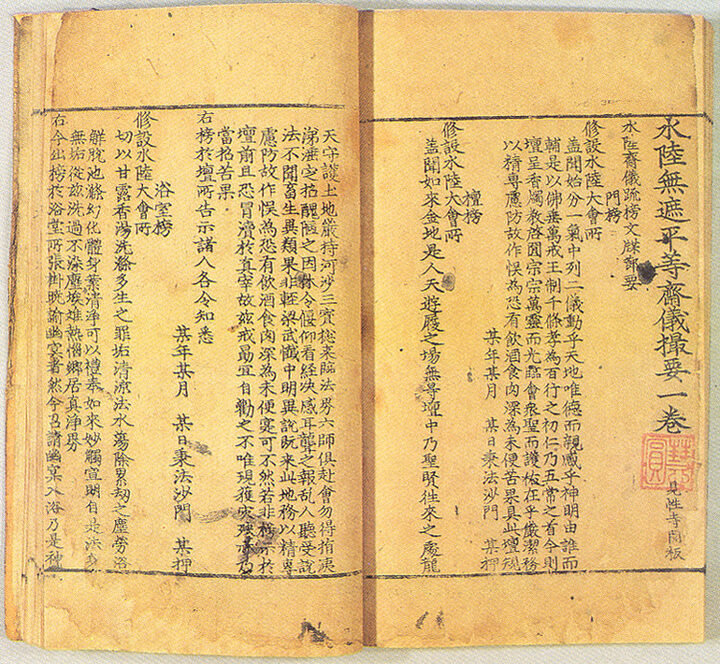 水陸無遮平等齋儀撮要一卷
見性寺開板
水陸齋儀疏榜文牒節要
門榜
修設水陸大會所
蓋聞始分一氣中列二儀動乎天地唯德而親感乎神明由誰而
輔是以佛垂萬戒王制千條孝為百行之初仁乃五常之首今則
壇呈香燭教啓圓宗宗萬靈而光臨會衆聖而護在乎嚴潔務
以精專慮防故作悞為恐有飲酒食肉深為未便苦果具此壇規
某年某月 某日秉法沙門 某押
壇榜
修設水陸大會所
盖聞如來金地是人天遊履之場無碍壇中乃聖賢往來之處龍
天守護土地嚴持河沙三寶捴來臨法界六師俱赴會勿得洟
涕唾定招醜陋之因休令偃仰看經決感耳聾之報乱人聽受說
法不聞畜生異類果非輕梁武懺中明異說旣來此地務以精專
慮防故作悞為恐有飲酒食肉深為未便寔可不然若非榜示於
壇前且恐冒瀆於真宰故玆戒勗宜自勸之不唯現獲灾殃亦乃
當招苦果
右榜於壇所告示諸人各令知悉
某年某月 某日秉法沙門 某押
浴室榜
修設水陸大會所
切以甘露香湯洗滌多生之罪垢清凉法水蕩除累劫之塵勞浴
解脫池滌幻化體身業清淨可以禮奉如來妙觸宣明自是法身
無垢從玆洗過不染塵埃離熱惱鄉居真淨界
右今出榜於浴堂所張掛曉諭幽冥者然今召請幽冥入浴乃是神